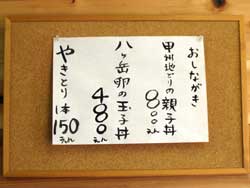 おしながき
甲州地どりの親子丼
800えん
八ヶ岳卵の玉子丼
480えん
やきとり 1本
150えん